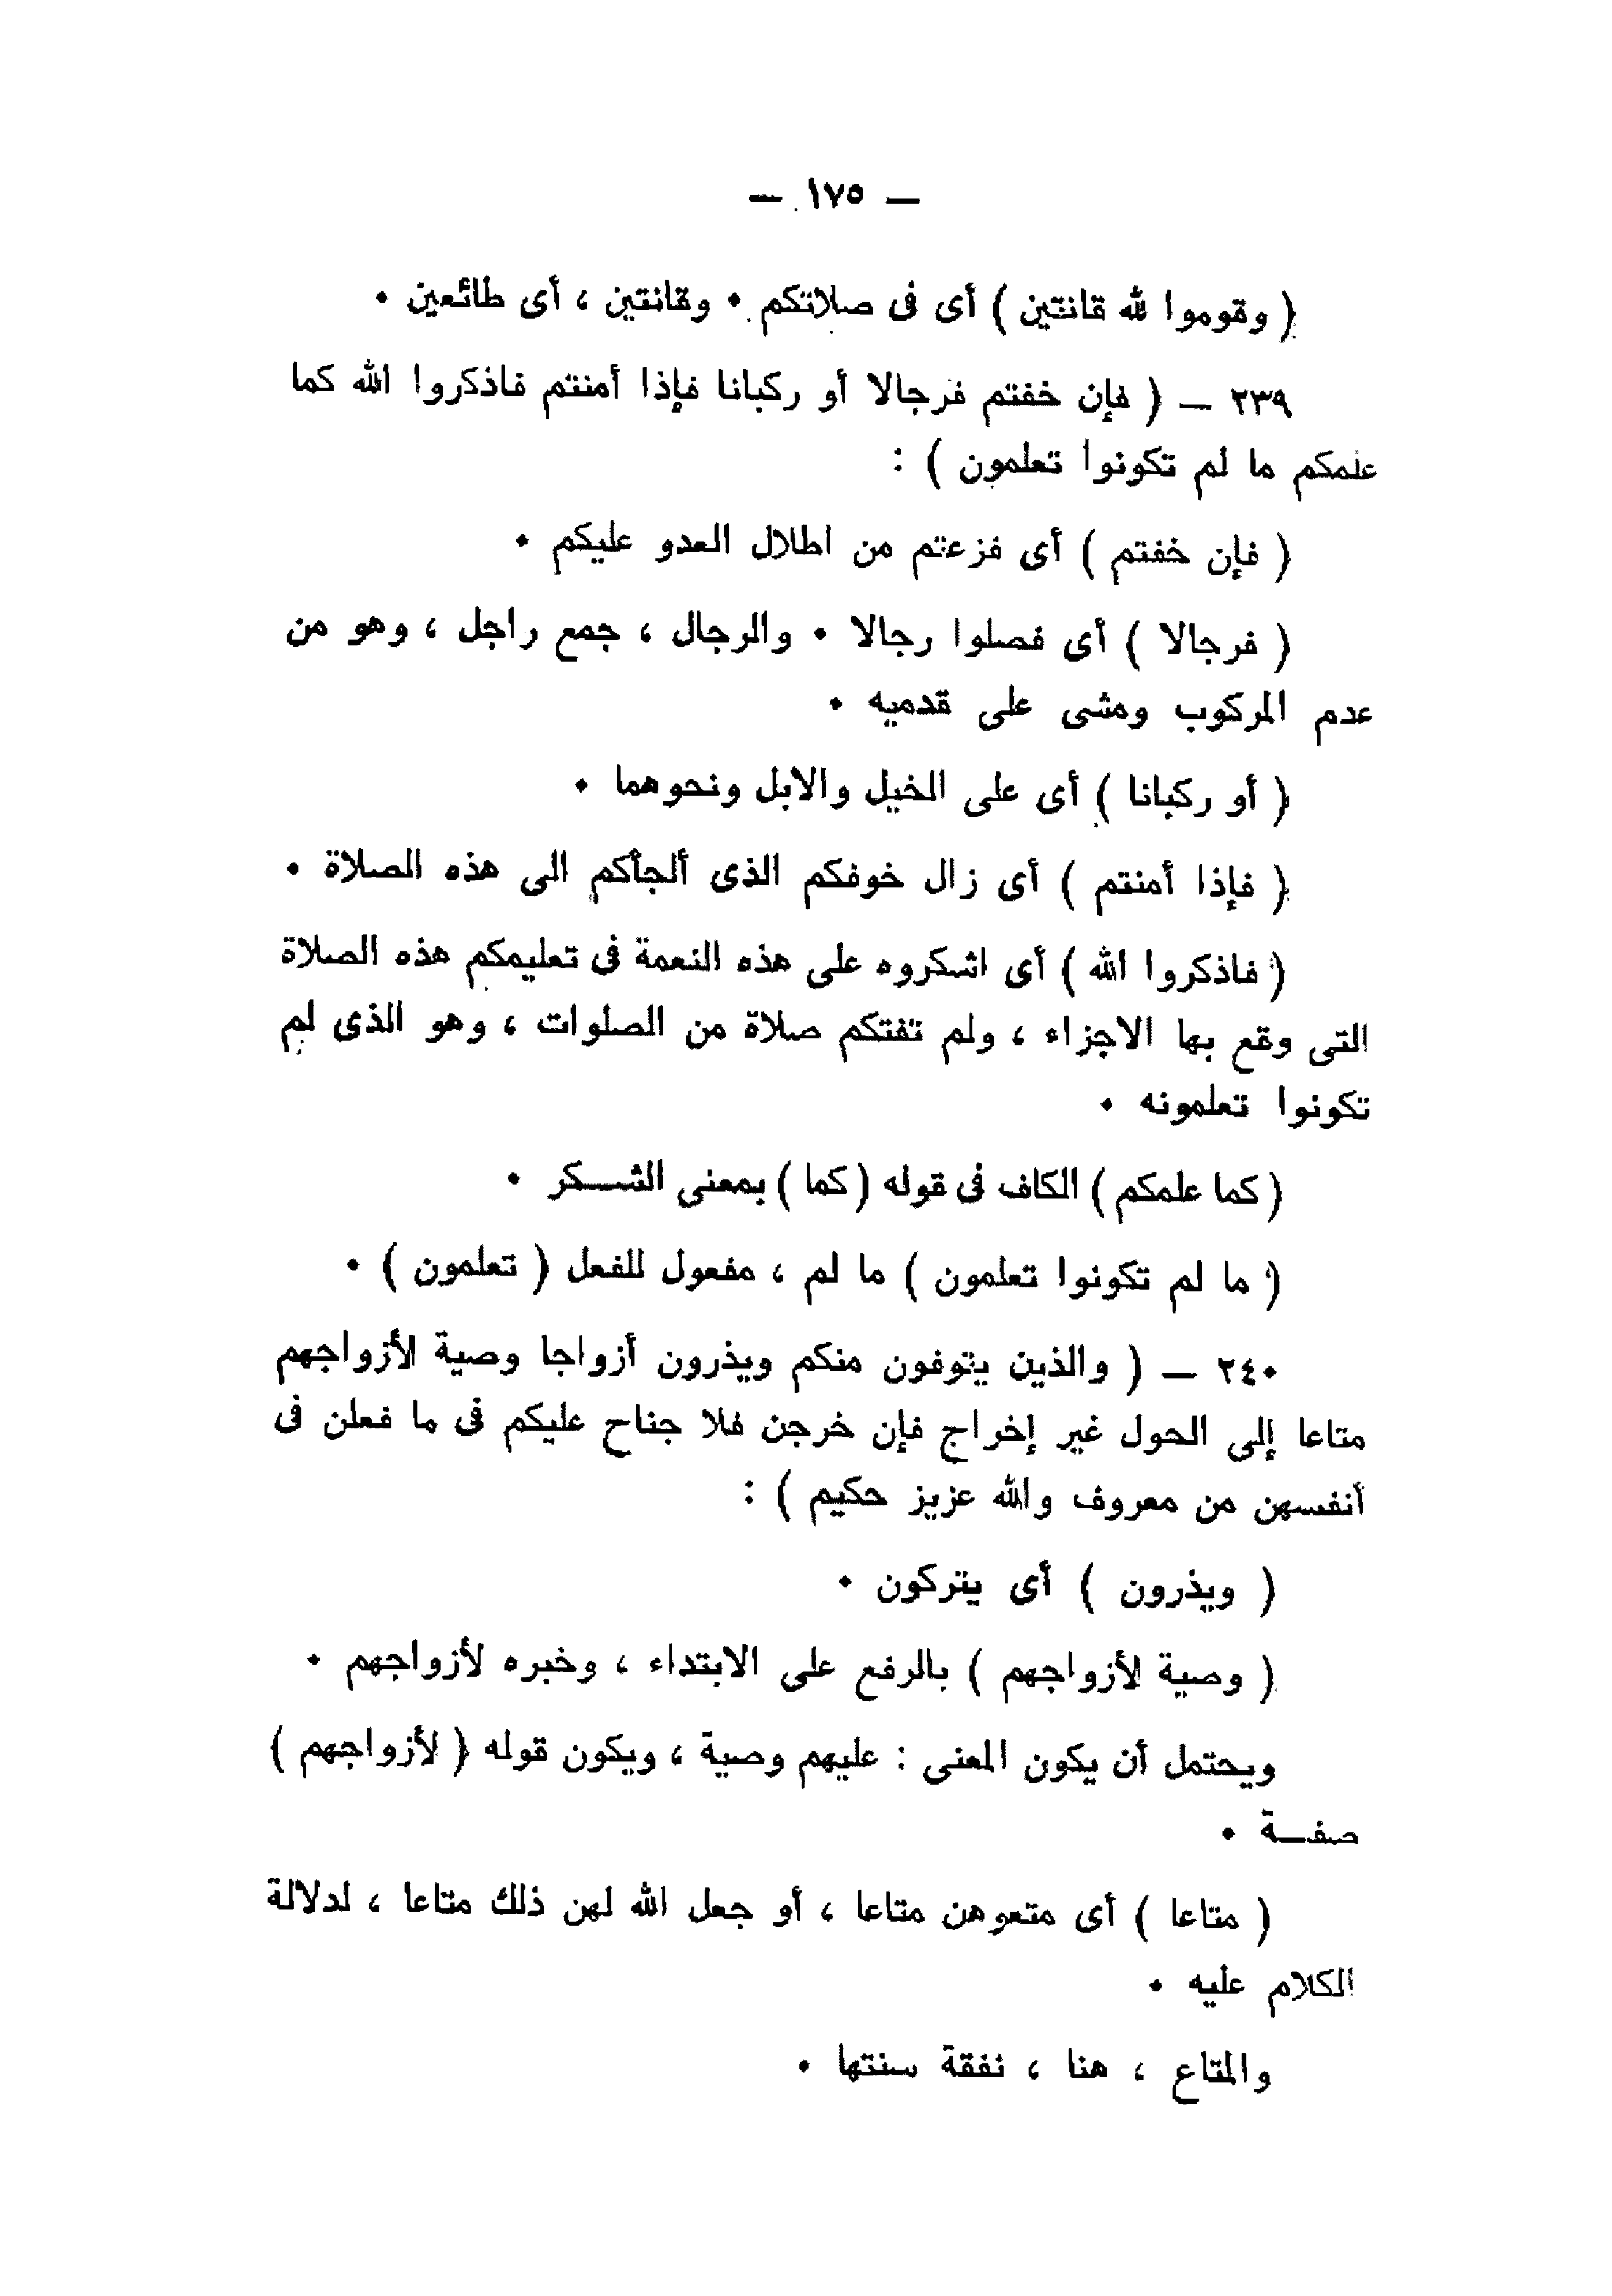 — ١٧٥ —
( وقوموا لله قانتين ) أى فى صلاتكم • وقانتين ، أى طائعين •
٢٣٩ — ( فإن خفتم فرجالا أو ركبانا فإذا أمنتم فاذكروا الله كما
علمكم ما لم تكونوا تعلمون ) :
( فإن خفتم ) أى فزعتم من اطلال العدو عليكم •
( فرجالا ) أى فصلوا رجالا • والرجال ، جمع راجل ، وهو من
عدم المركوب ومشى على قدميه •
( أو ركبانا ) أى على الخيل والابل ونحوهما •
( فإذا أمنتم ) أى زال خوفكم الذى ألجأكم الى هذه الصلاة •
( فاذكروا الله ) أى اشكروه على هذه النعمة فى تعليمكم هذه الصلاة
التى وقع بها الاجزاء ، ولم تفتكم صلاة من الصلوات ، وهو الذى لم
تكونوا تعلمونه •
( كما علمكم ) الكاف فى قوله ( كما ) بمعنى الشكر •
( ما لم تكونوا تعلمون ) ما لم ، مفعول للفعل ( تعلمون ) •
٢٤٠ — ( والذين يتوفون منكم ويذرون أزواجا وصية لأزواجهم
متاعا إلى الحول غير إخراج فإن خرجن فلا جناح عليكم فى ما فعلن فى
أنفسهن من معروف والله عزيز حكيم ) :
( ويذرون ) أى يتركون •
( وصية لأزواجهم ) بالرفع على الابتداء ، وخبره لأزواجهم •
ويحتمل أن يكون المعنى : عليهم وصية ، ويكون قوله ( لأزواجهم )
صفة •
( متاعا ) أى متعوهن متاعا ، أو جعل الله لهن ذلك متاعا ، لدلالة
الكلام عليه •
والمتاع ، هنا ، نفقة سنتها •